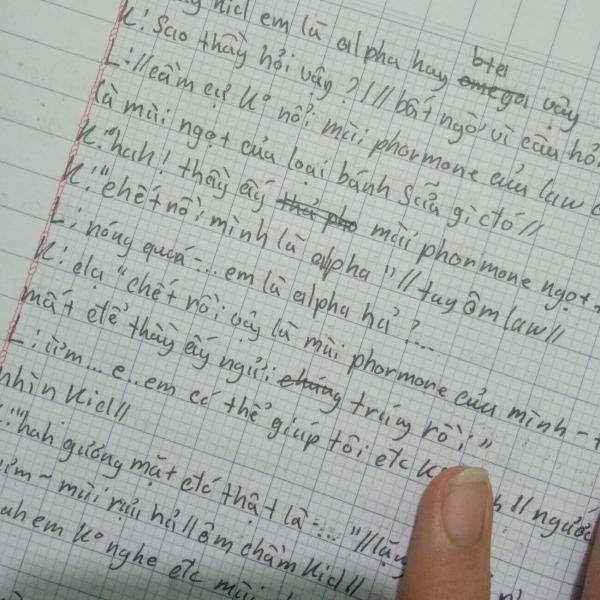 kid em là alpha hay beta omega vậy
K: Sao thầy hỏi vậy? // bất ngờ vì câu hỏi
L: // cầm cự K° nổi mùi phormone của law
là mùi ngọt của loại bánh sữa gì đó //
K: "hah! thầy ấy thả pho mùi phormone ngọt
K: "chết rồi mình là alpha" // tay ôm law //
L: nóng quá... em là alpha hả?...
K: dạ "chết rồi vậy là mùi phormone của mình
mất để thầy ấy ngửi chúng trúng rồi"
L: ưm... e.. em có thể giúp tôi đc K°
nhìn Kid //
"hah gương mặt đó thật là..." //
ưm ~ mùi rượu hả // ôm chầm Kid //
em K° nghe đc